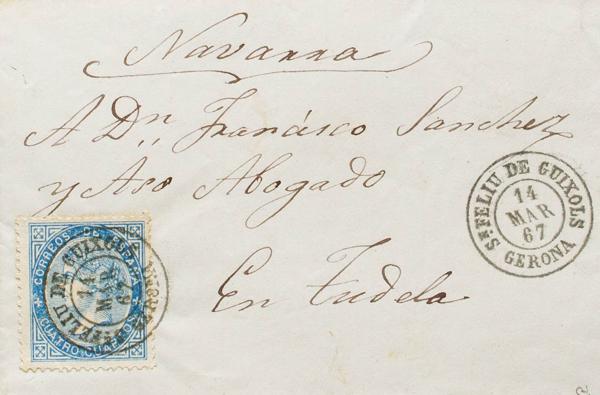 Navarra
A Dn. Francisco Sanchez
y Aso Abogado
En Tudela
Sn. FELIU DE GUIXOLS
14
MAR
67
GERONA
CORREOS DE ESPAÑA
CUATRO CUARTOS
FELIU DE GUIXOLS
14
MAR
67